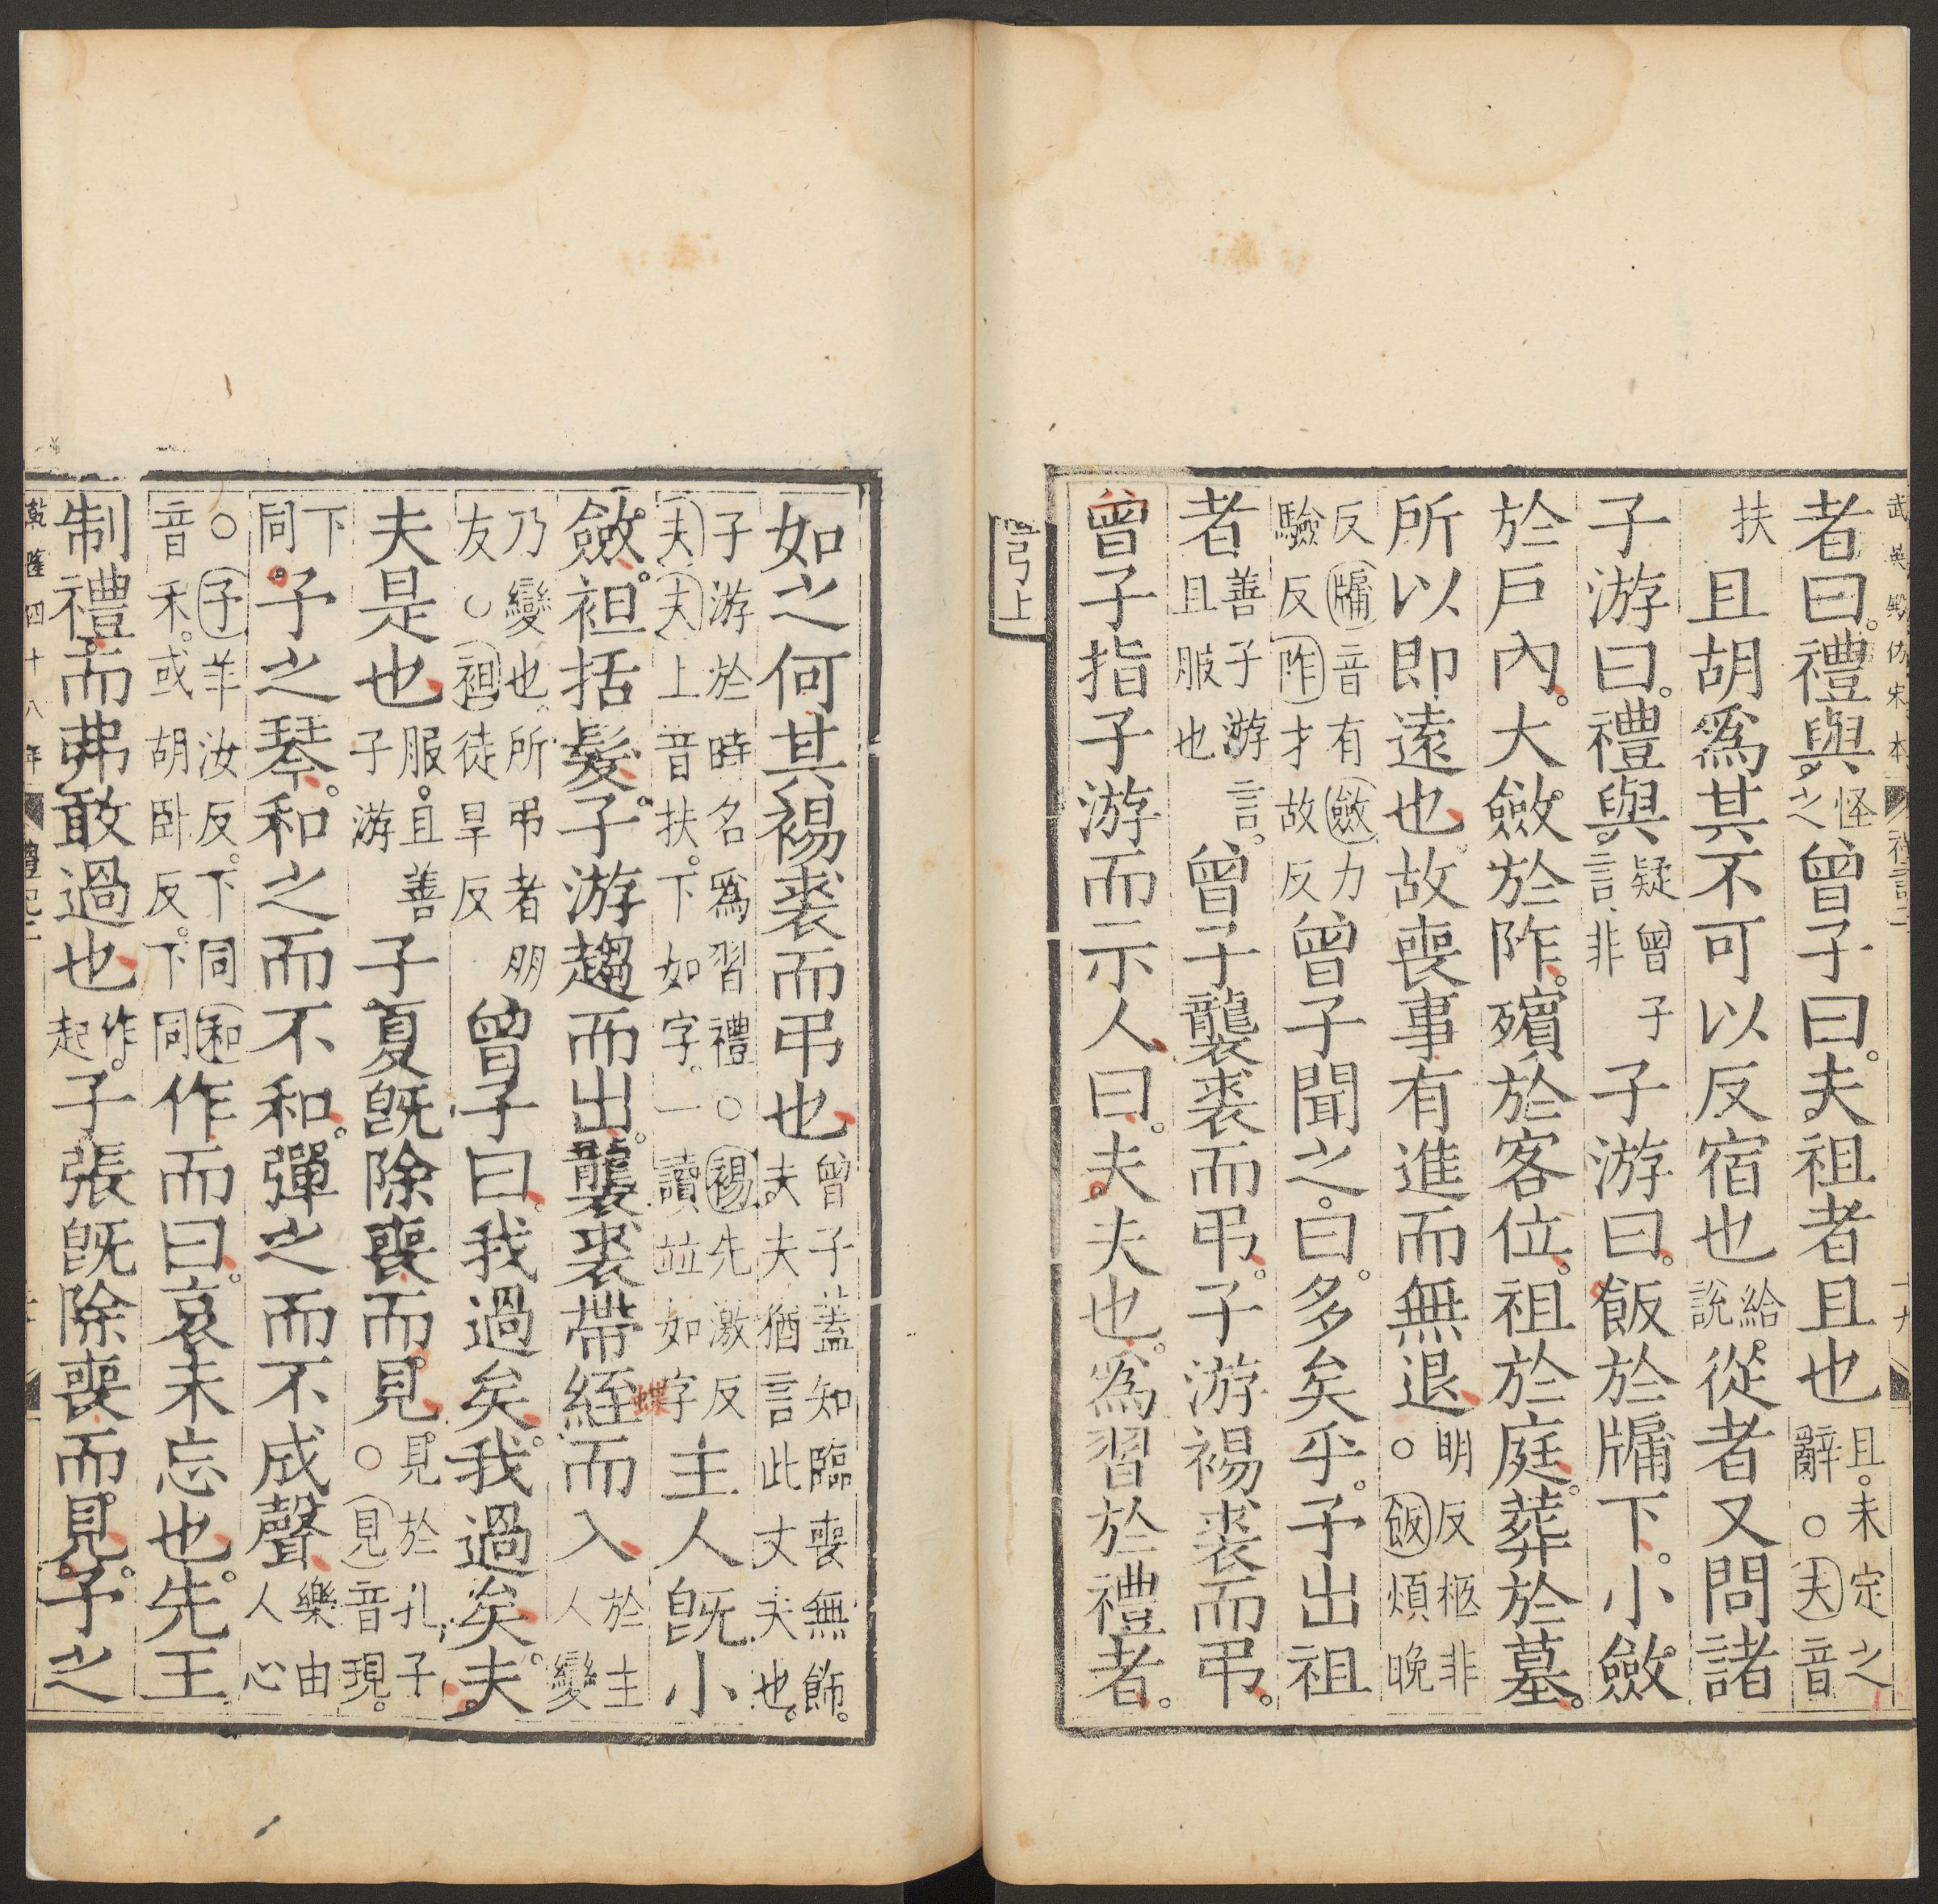 武英殿仿宋本 禮記二 十九
者曰。禮與。怪之曾子曰。夫祖者且也且。未定之辭○夫音
扶且胡爲其不可以反宿也給說。從者又問諸
子游曰。禮與。疑曾子言非子游曰。飯於牖下。小斂
於戶內。大斂於阼。殯於客位。祖於庭。葬於墓。
所以即遠也。故喪事有進而無退。明反柩非○飯煩晚
反牖音有斂力驗反阼才故反曾子聞之。曰。多矣乎。予出祖
者善子游言。且服也曾子襲裘而弔。子游裼裘而弔。
曾子指子游而示人曰。夫夫也。爲習於禮者。
弓上
如之何其裼裘而弔也曾子蓋知臨喪無飾。夫夫猶言此丈夫也。
子游於時名爲習禮○裼先激反夫夫上音扶。下如字。一讀竝如字主人既小
斂。袒括髮。子游趨而出。襲裘帶絰而入於主人變
乃變也。所弔者朋友○袒徒旱反曾子曰。我過矣。我過矣。夫
夫是也服。且善子游子夏既除喪而見。見於孔子○見音現。
下同。予之琴。和之而不和。彈之而不成聲樂由人心
○予羊汝反。下同和音禾。或胡卧反。下同作而曰。哀未忘也。先王
制禮。而弗敢過也作。起子張既除喪而見。予之
乾隆四十八年 禮記二